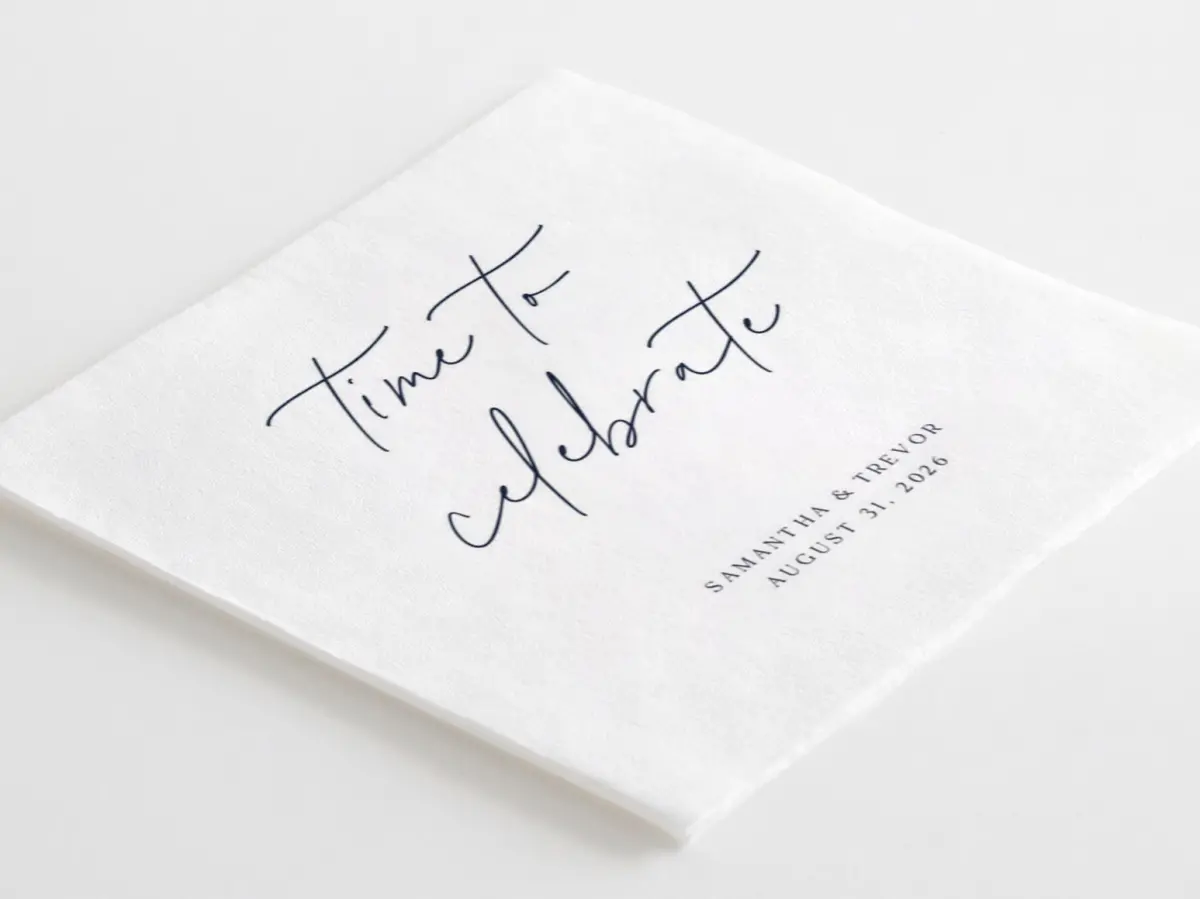 time to
celebrate
SAMANTHA & TREVOR
AUGUST 31, 2026